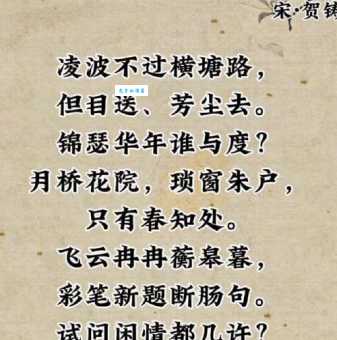 宋·贺铸
凌波不过横塘路，
但目送、芳尘去。
锦瑟华年谁与度？
月桥花院，琐窗朱户，
只有春知处。
飞云冉冉蘅皋暮，
彩笔新题断肠句。
试问闲情都几许？